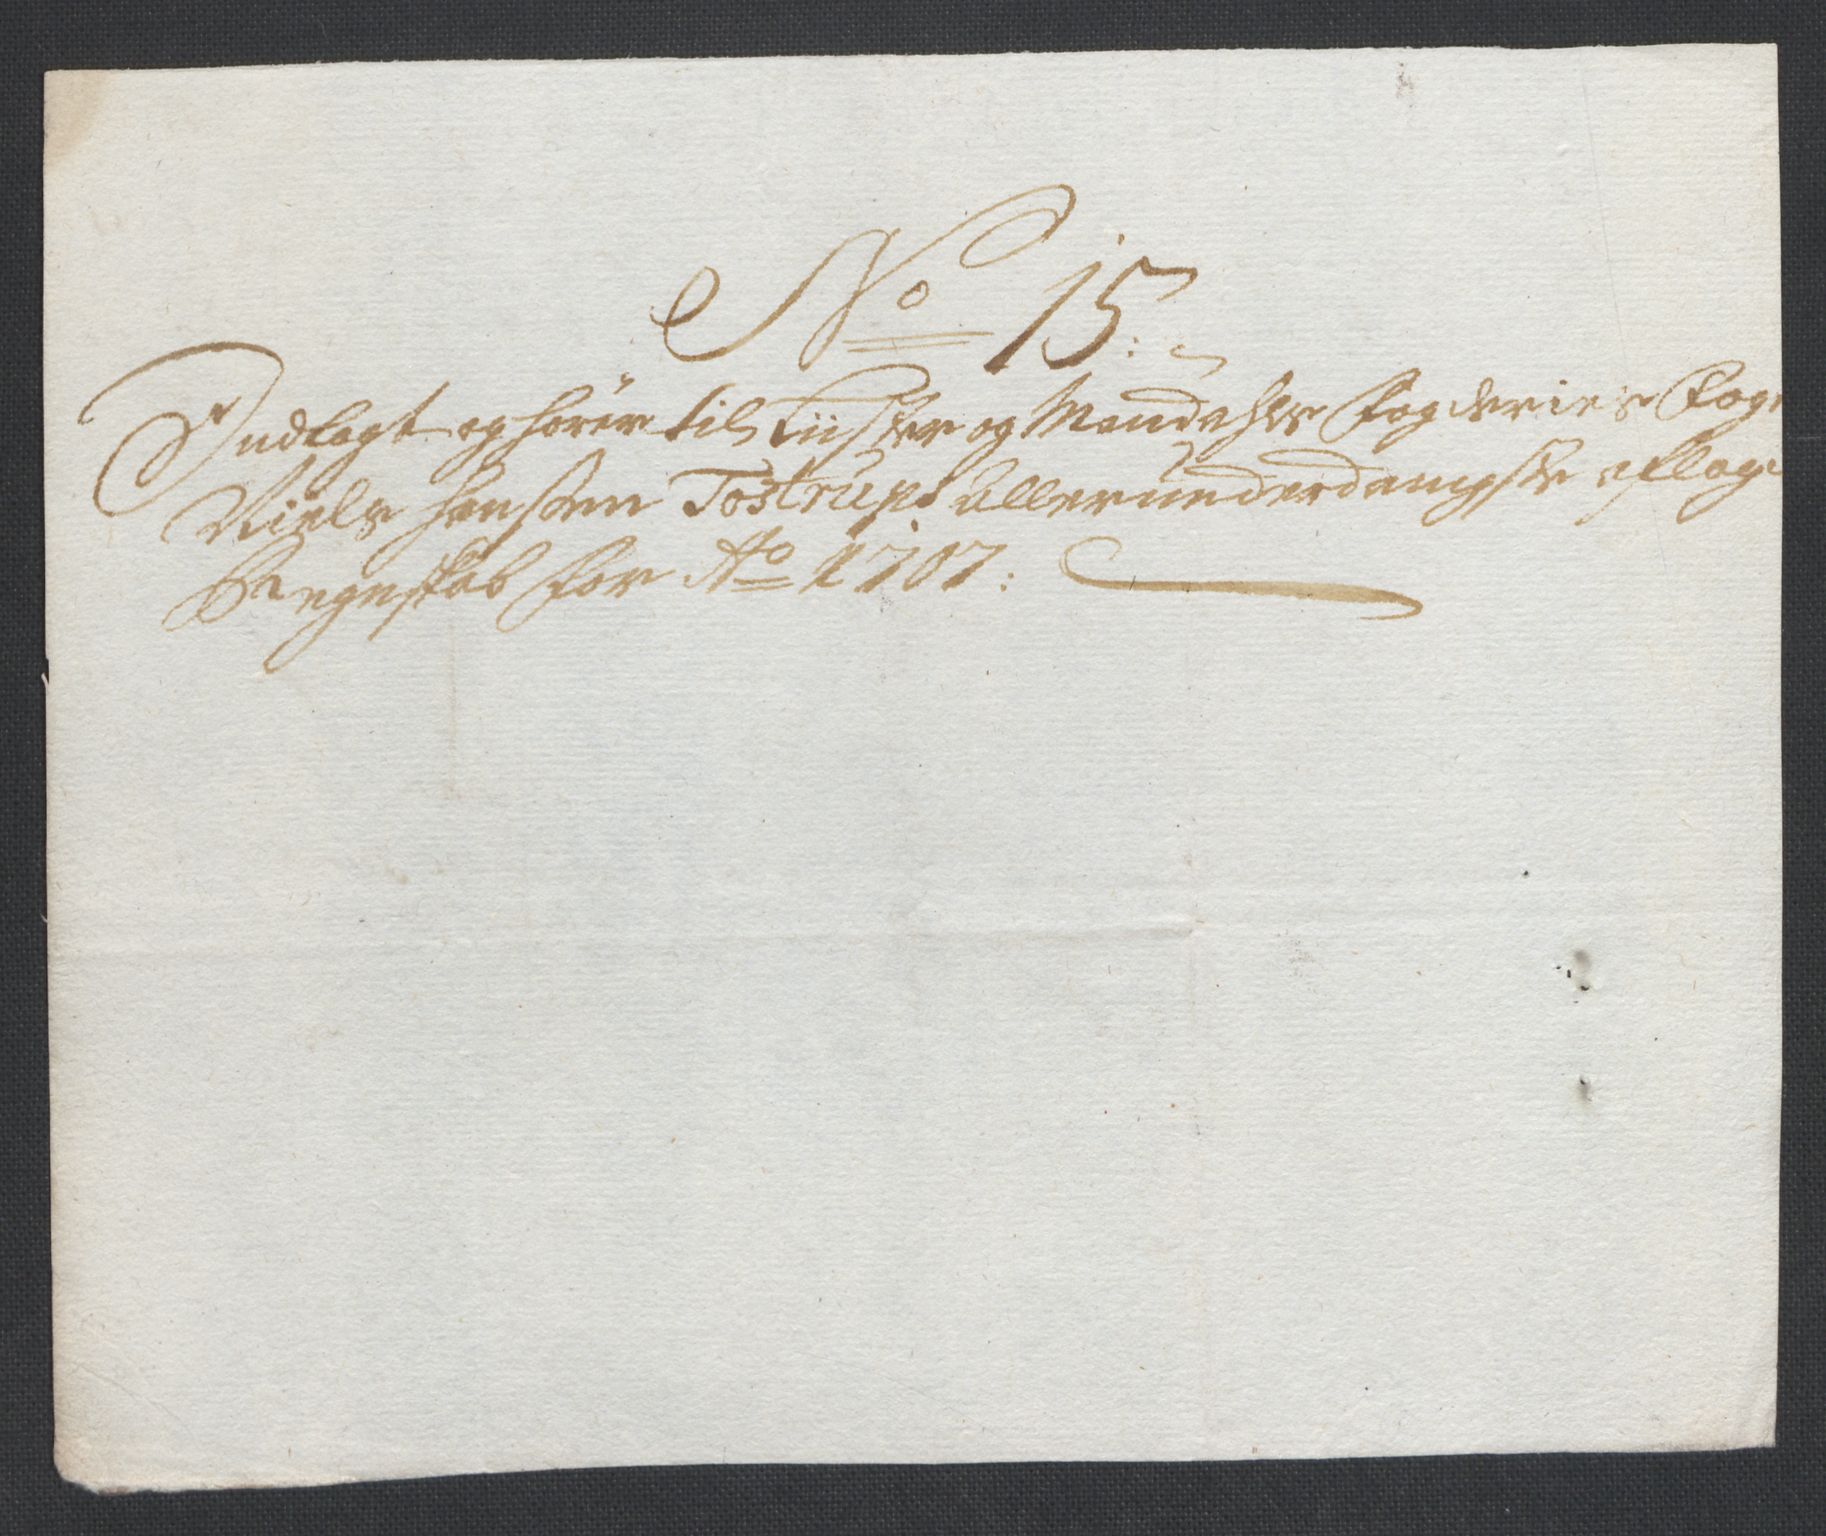 No 15:
Indlagt og hörer til Lister og Mandahls Fogderies Fog
Niels Hansen Tostrups Allerunderdanigste aflag
Regnskab for Ao 1707: